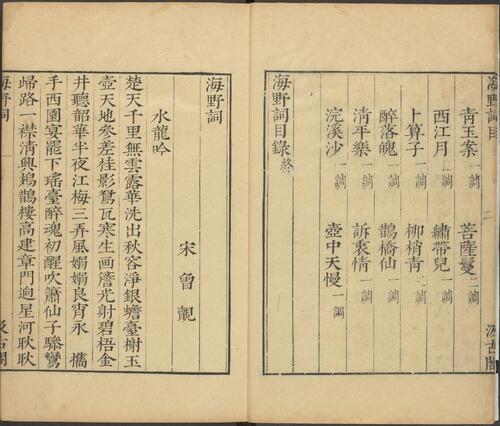 海野詞目
青玉案 一調 菩薩蠻 二調
西江月 一調 繡帶兒 一調
卜算子 一調 柳梢青 一調
醉落魄 一調 鵲橋仙 一調
清平樂 一調 訴衷情 一調
浣溪沙 一調 壺中天慢 一調
海野詞目錄終
汲古閣
海野詞
宋 曾覿
水龍吟
楚天千里無雲露華洗出秋容淨銀蟾臺榭玉
壺天地參差桂影鴛瓦寒生畫簷光射碧梧金
井聽韶華半夜江梅三弄風嫋嫋良宵永 攜
手西園宴罷下瑤臺醉魂初醒吹簫仙子驂鸞
歸路一襟清興鳷鵲樓高建章門迥星河耿耿
海野詞
汲古閣